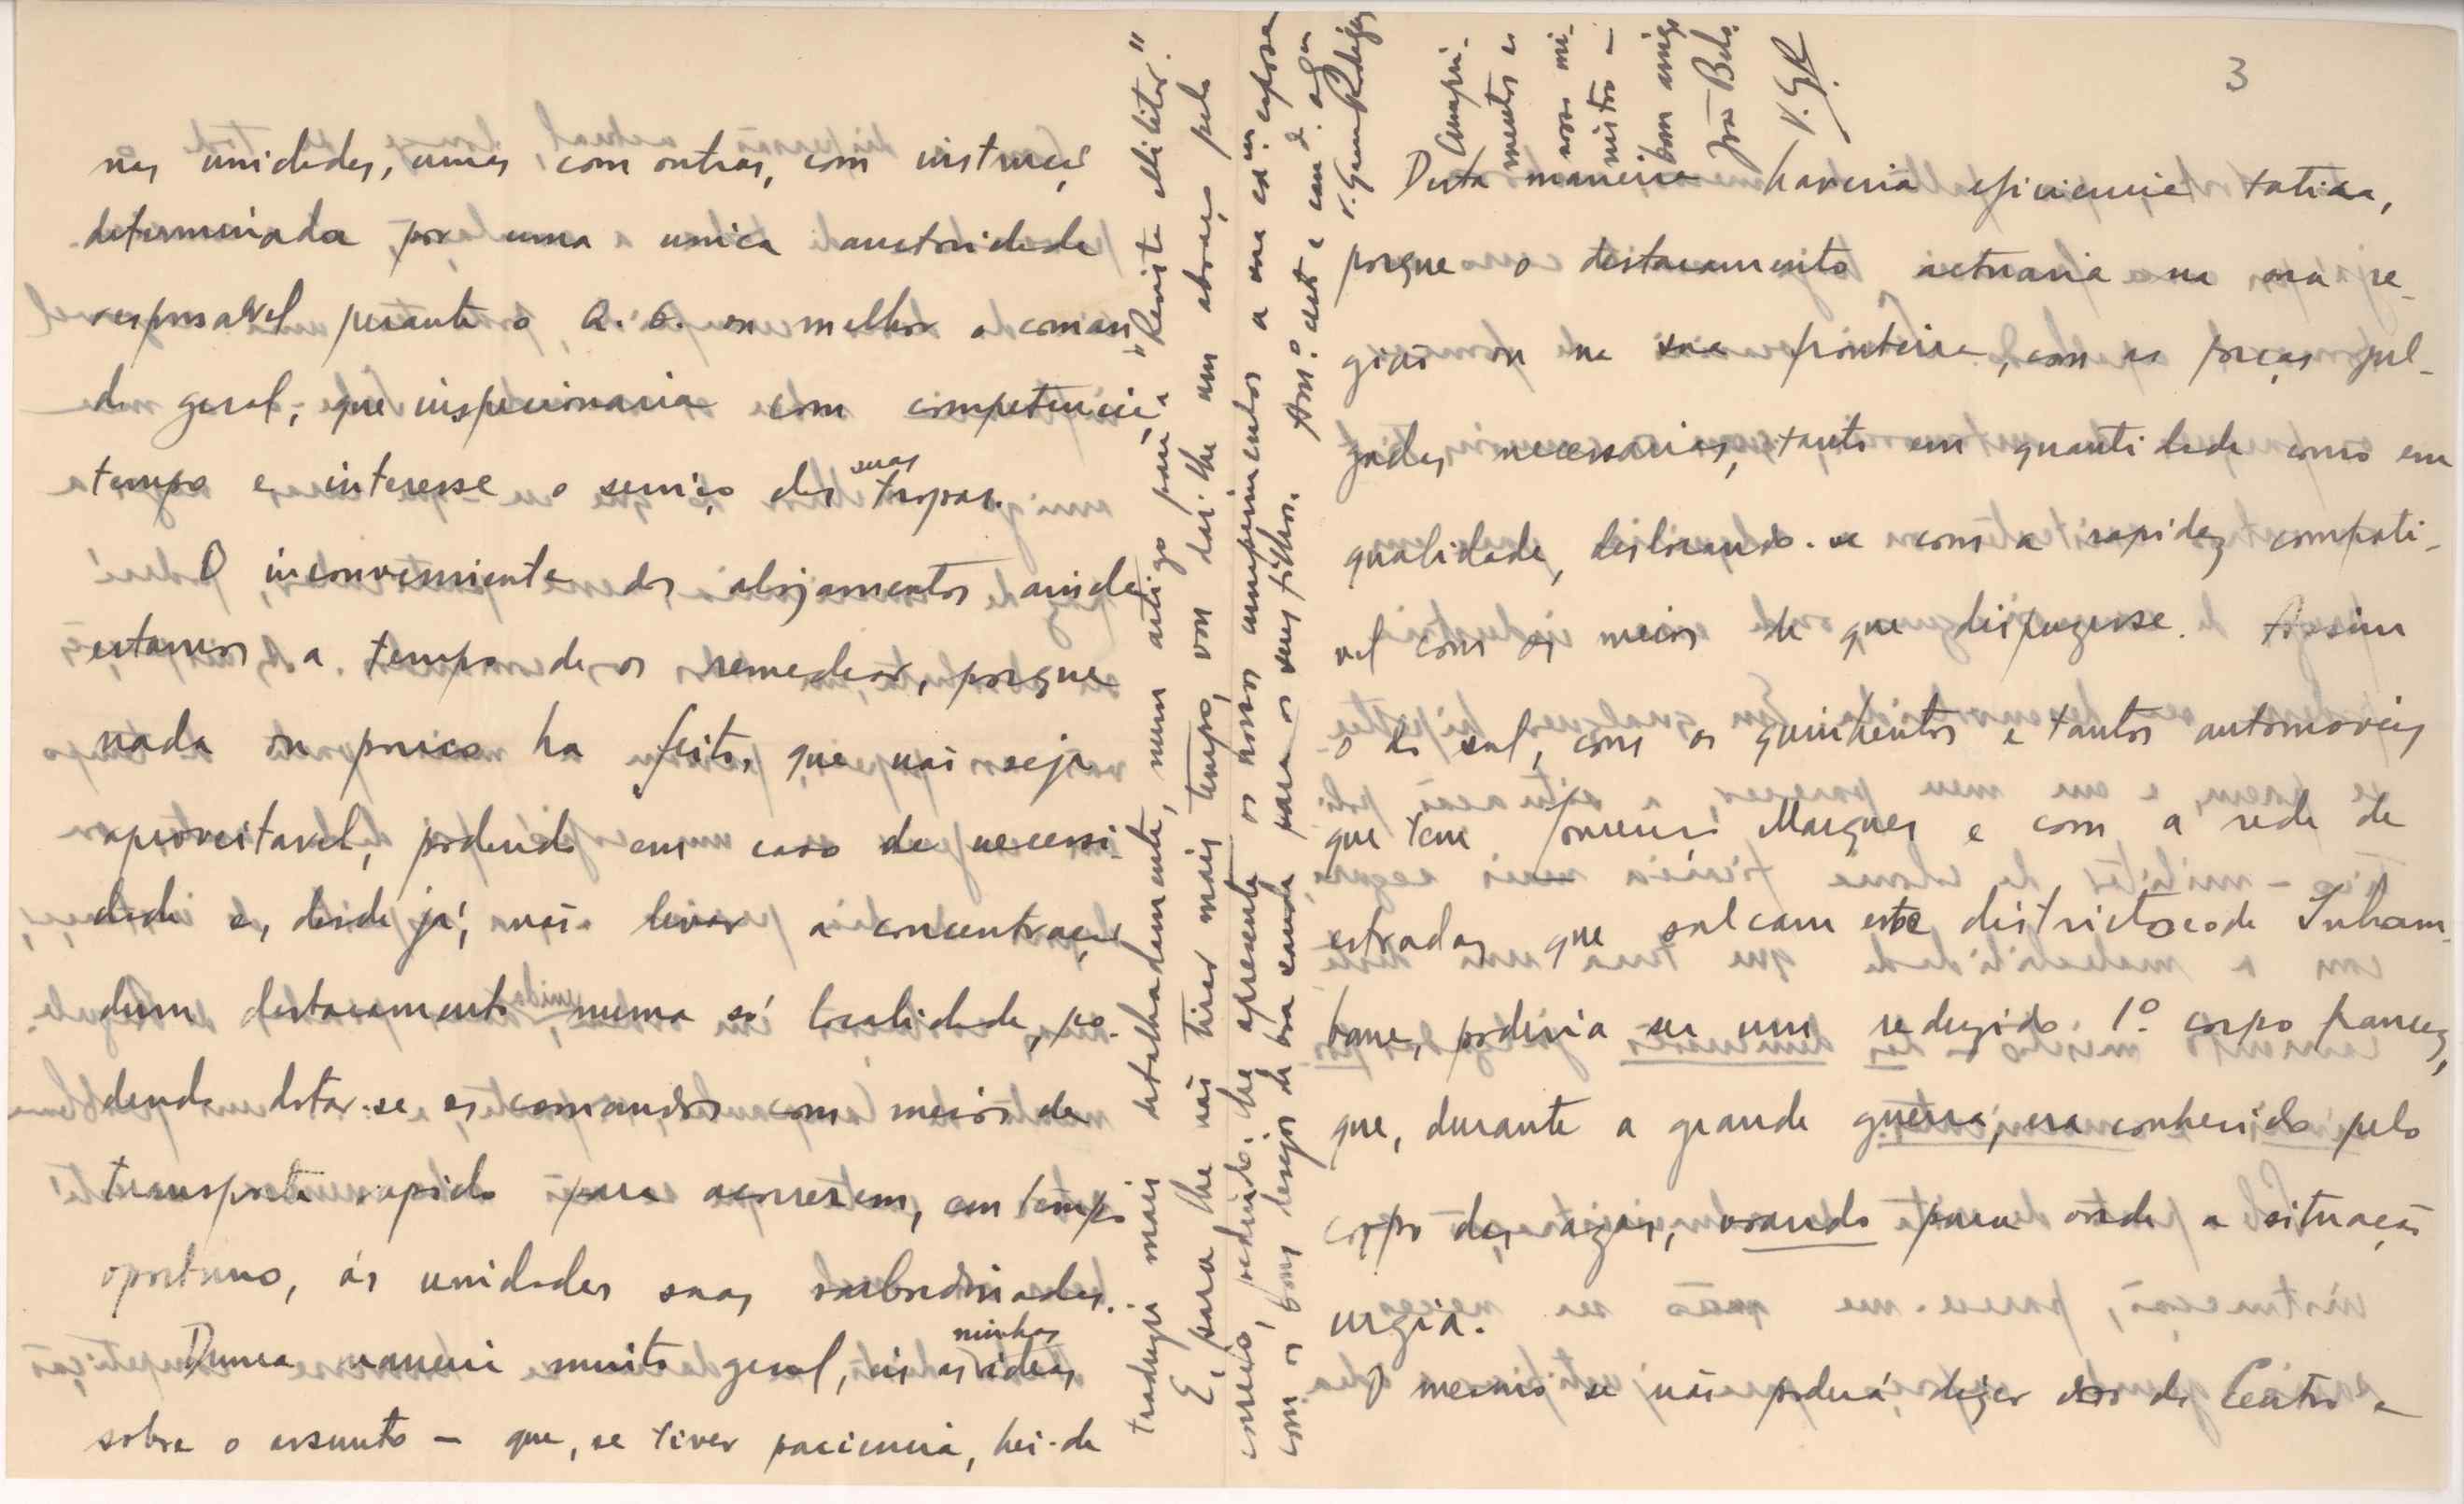 nas unidades, umas com outras, com instrução
determinada por uma unica auctoridade
responsavel perante o Q. G. ou melhor o coman
do geral, que inspecionaria com competencia,
tempo e interesse o serviço das suas tropas.
O inconveniente dos alojamentos ainda
estamos a tempo de os remediar, porque
nada ou pouco ha feito, que não seja
aproveitavel, podendo em caso de necessi-
dade e, desde já, não levar a concentração
dum destacamento numa só localidade, po-
dendo dotar-se os comandos com meios de
transporte rapido para acorrerem, em tempo
oportuno, ás unidades suas subordinadas.
Duma maneira muito geral, eis as minhas ideas
sobre o assunto – que, se tiver paciencia, hei-de
traduzir mais detalhadamente, num artigo para a "Revista Militar."
E, para lhe não tirar mais tempo, vou dar-lhe um abraço pelo
correio, pedindo-lhe apresente os nossos cumprimentos a sua Ex.ma esposa
com os bons desejos de boa saude para os seus filhos. Am.o cert e cam.da
3
Desta maneira haveria eficiencia tatica,
porque o destacamento actuaria na sua re-
gião ou na sua fronteira, com as forças jul-
gadas necessarias, tanto em quantidade como em
qualidade, deslocando-se com a rapidez compati-
vel com os meios de que dispuzesse. Assim
o do sul, com os quinhentos e tantos automoveis
que tem Lourenço Marques e com a rede de
estradas que sulcam este districto e o de Inham-
bane, poderia ser um reduzido 1.º corpo francez,
que, durante a grande guerra, era conhecido pelo
corpo das azas, voando para onde a situação
urgia.
O mesmo se não poderá dizer dos do Centro e
Cumpri-
mentos ao
nosso mi-
nistro e
bom amigo
João Belo
V. G. R.